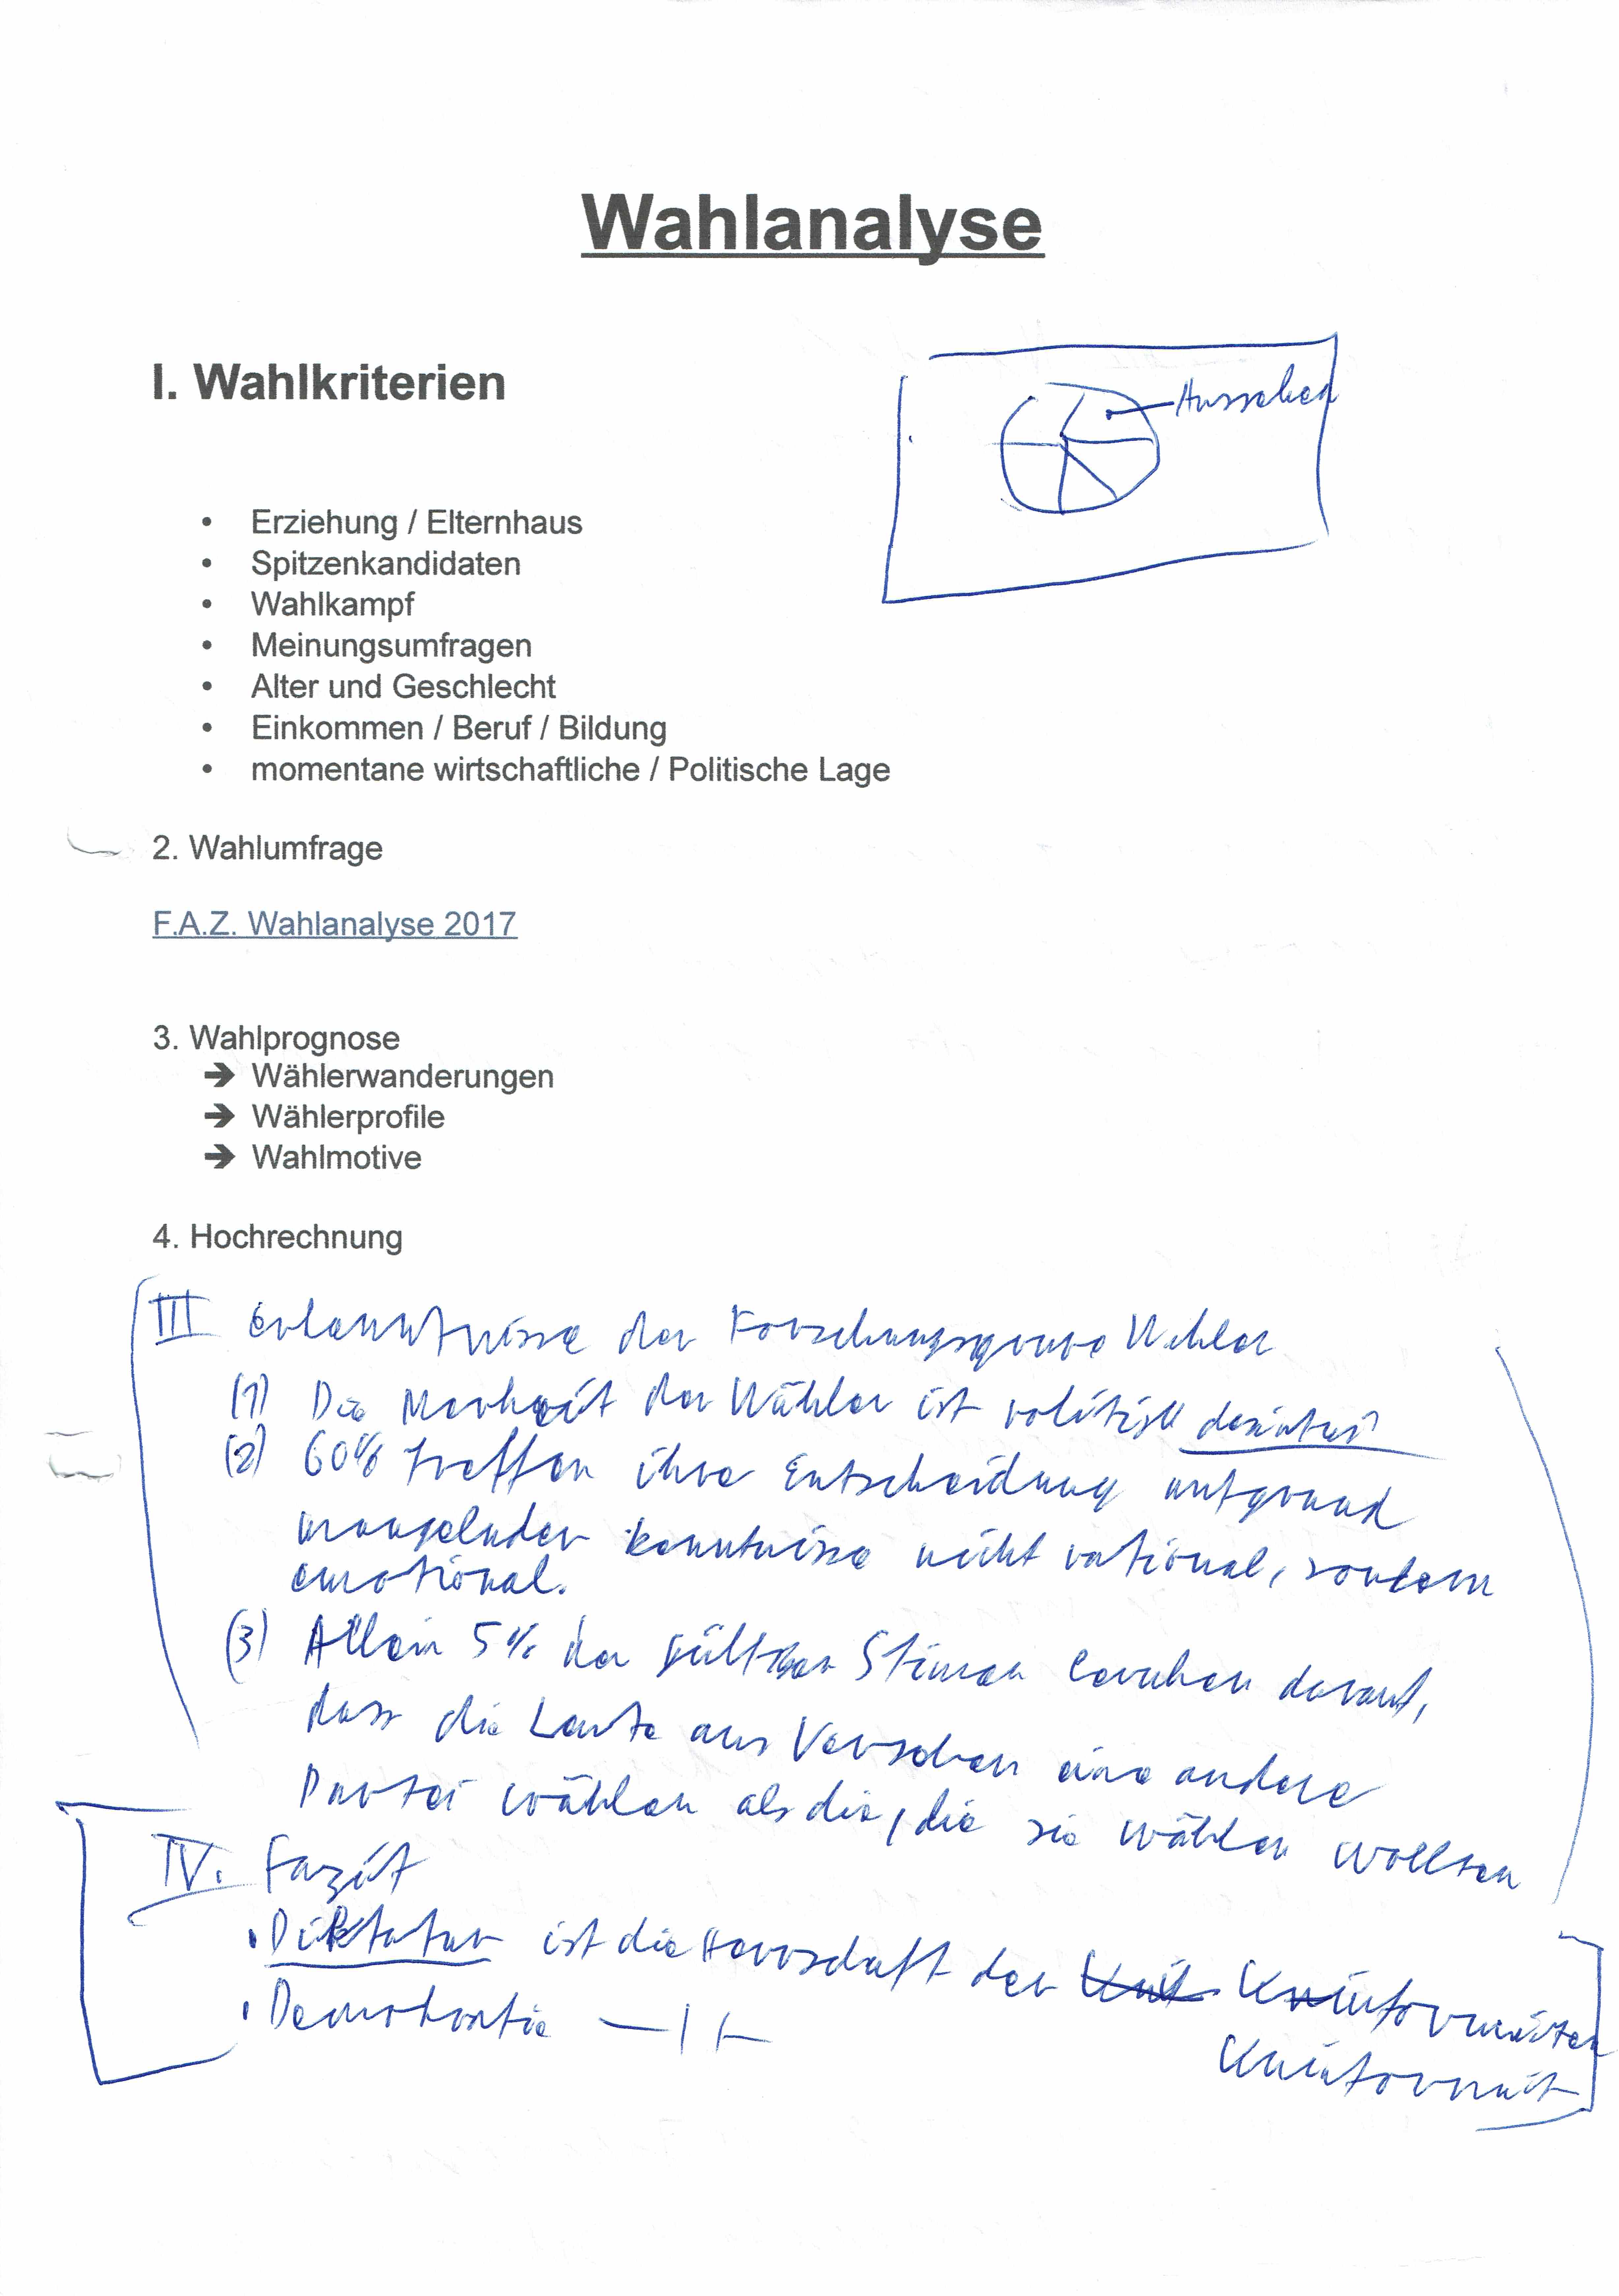 Wahlanalyse
I. Wahlkriterien
Aussehen
• Erziehung / Elternhaus
• Spitzenkandidaten
• Wahlkampf
• Meinungsumfragen
• Alter und Geschlecht
• Einkommen / Beruf / Bildung
• momentane wirtschaftliche / Politische Lage
2. Wahlumfrage
F.A.Z. Wahlanalyse 2017
3. Wahlprognose
➔ Wählerwanderungen
➔ Wählerprofile
➔ Wahlmotive
4. Hochrechnung
III Erkenntnisse der Forschungsgruppe Wahlen
(1) Die Merheit der Wähler ist politisch
(2) 60% treffen ihre Entscheidung aufgrund
mangelnder Kenntnisse nicht rational, sondern
emotional.
(3) Allein 5% der gültigen Stimen beruhen darauf,
dass die Leute aus Versehen eine andere
Partei wählen als die, die sie wählen wollten
IV. Fazit
• Diktatur ist die Herrschaft der Uninformierten
• Demokratie —||—